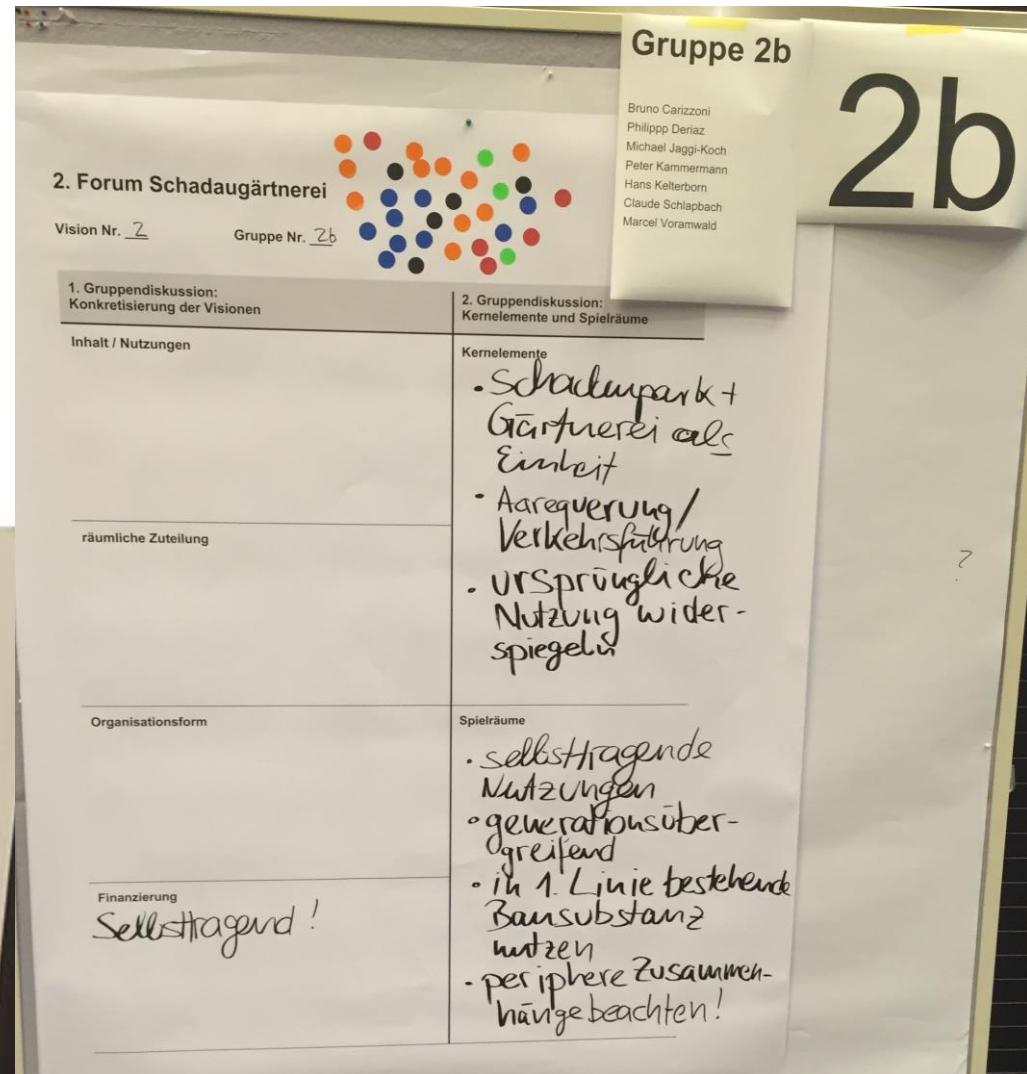 Gruppe 2b
Bruno Carizzoni
Philippp Deriaz
Michael Jaggi-Koch
Peter Kammermann
Hans Kelterborn
Claude Schlapbach
Marcel Voramwald
2b
2. Forum Schadaugärtnerei
Vision Nr. 2
Gruppe Nr. 2b
1. Gruppendiskussion:
Konkretisierung der Visionen
Inhalt / Nutzungen
räumliche Zuteilung
Organisationsform
Finanzierung
Selbsttragend!
2. Gruppendiskussion:
Kernelemente und Spielräume
Kernelemente
• Schadaupark +
Gärtnerei als
Einheit
• Aarequerung/
Verkehrsführung
• ursprüngliche
Nutzung wider-
spiegeln
Spielräume
• selbsttragende
Nutzungen
• generationsüber-
greifend
• in 1. Linie bestehende
Bausubstanz
nutzen
• periphere Zusammen-
hänge beachten!
?